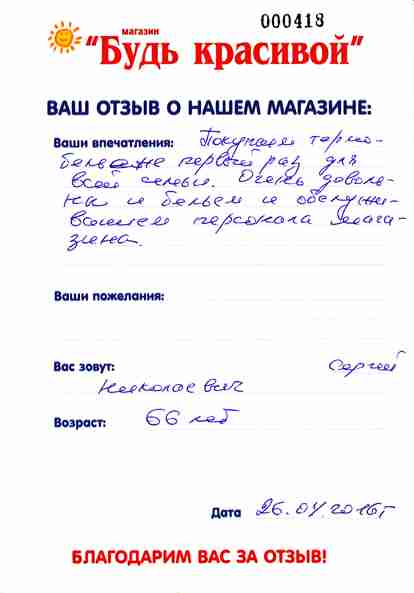 000418
магазин
"Будь красивой"
ВАШ ОТЗЫВ О НАШЕМ МАГАЗИНЕ:
Ваши впечатления: Покупаем термо-
белье не первый раз для
всей семьи. Очень доволь-
ны и бельем и обслужи-
ванием персонала мага-
зина.
Ваши пожелания:
Вас зовут: Сергей
Николаевич
Возраст: 66 лет
Дата 26.04.2016г
БЛАГОДАРИМ ВАС ЗА ОТЗЫВ!